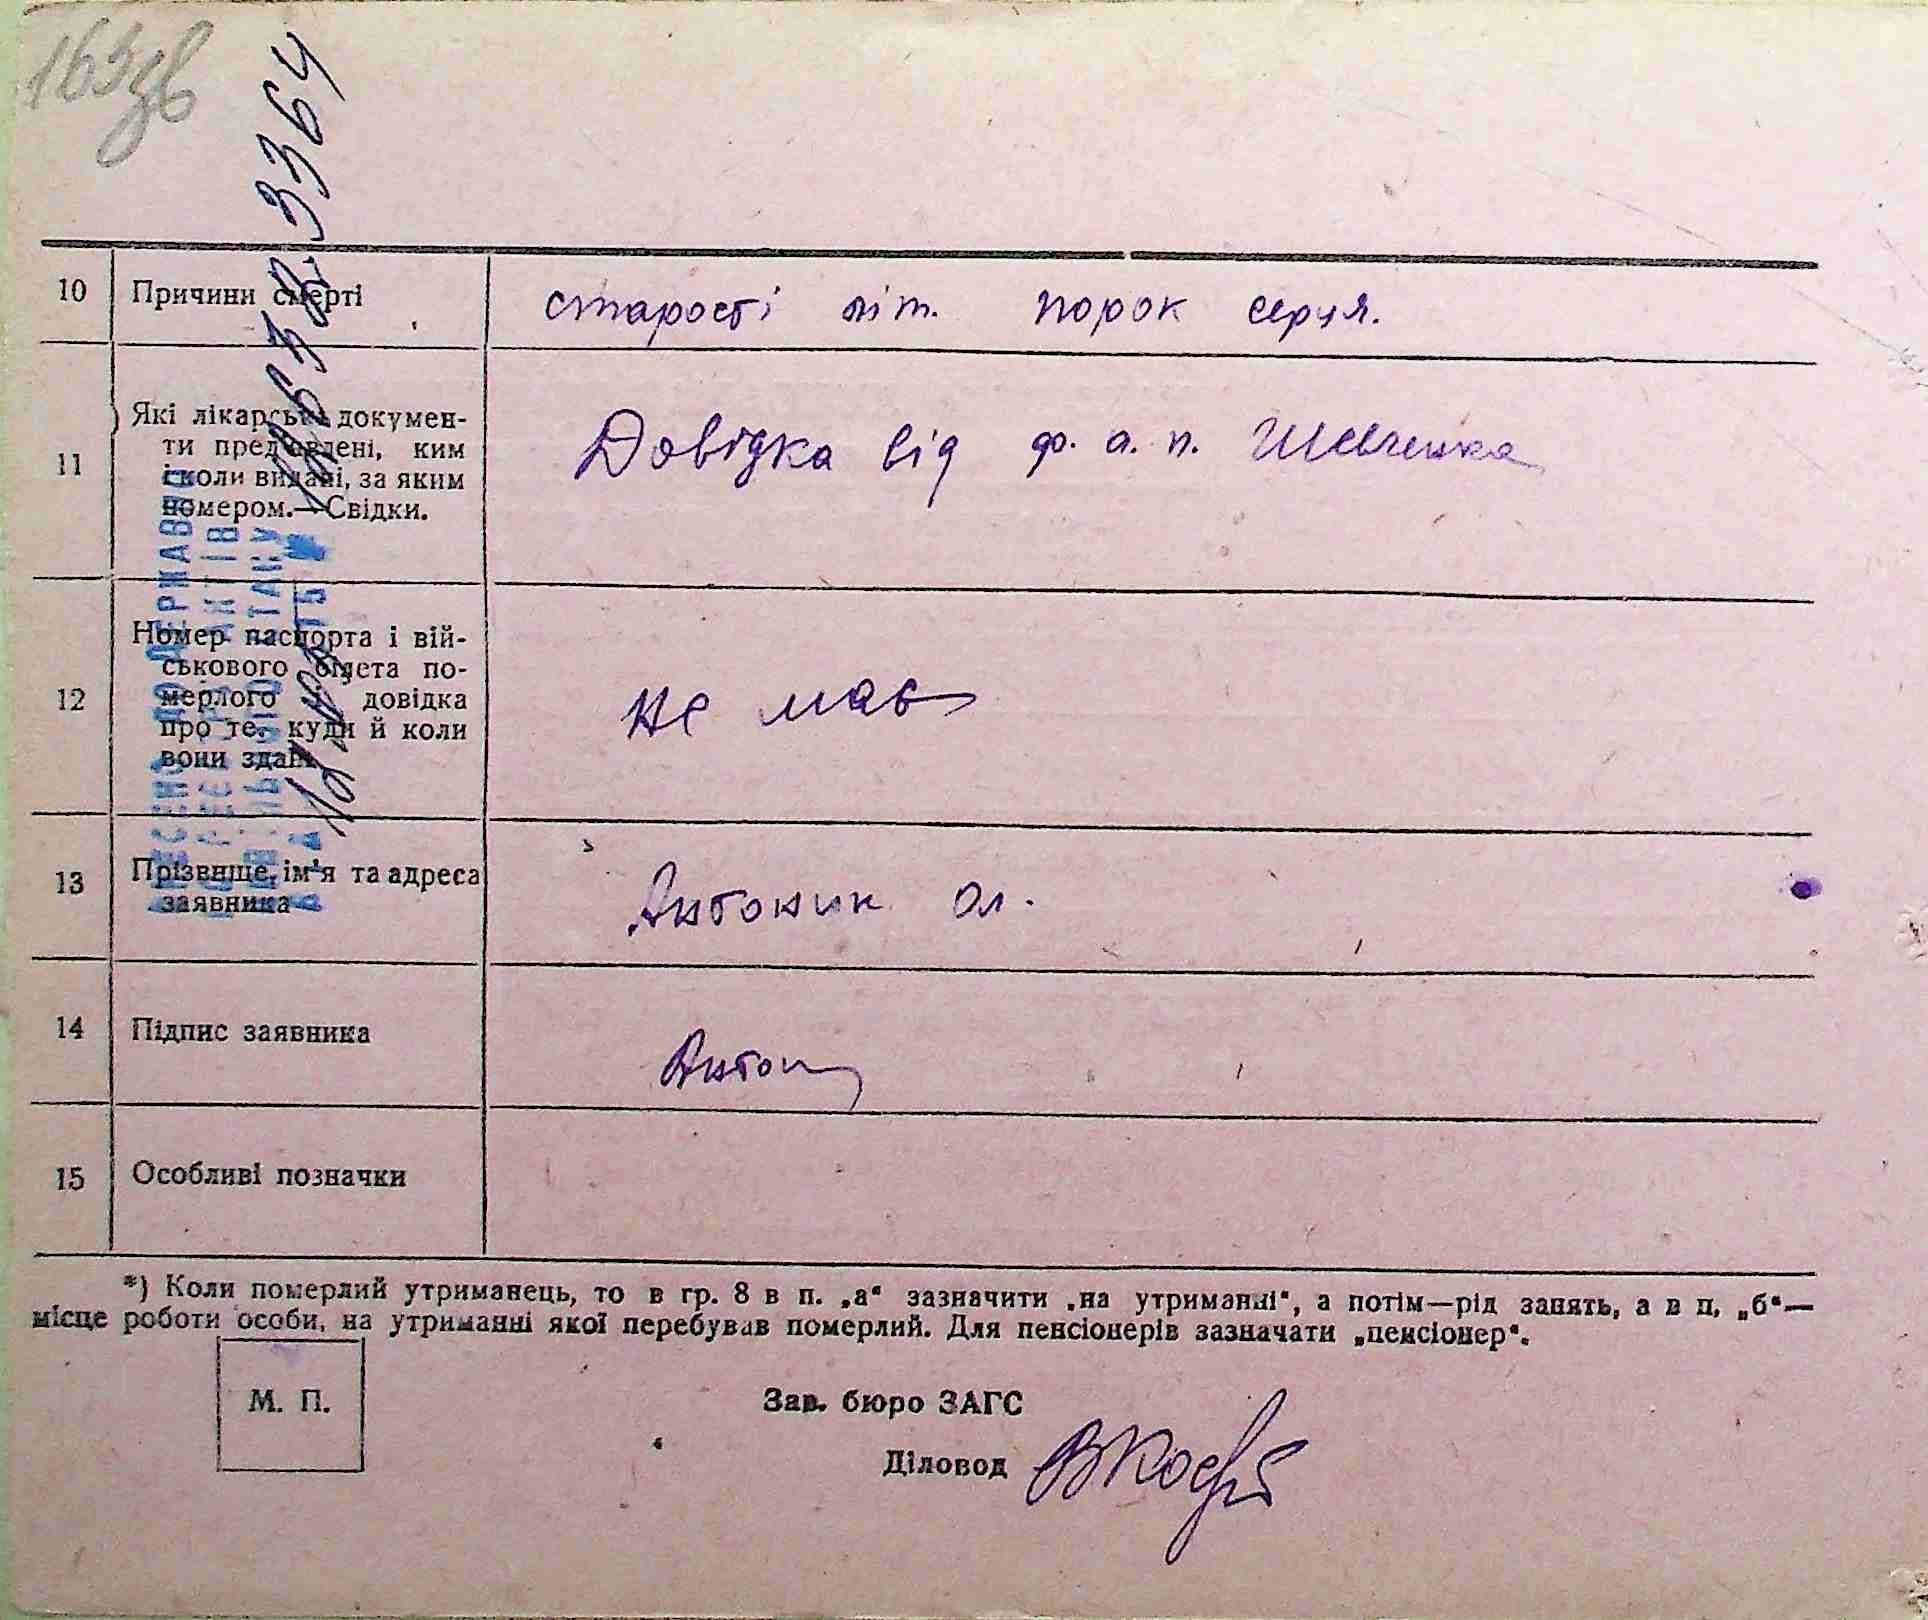 163зв
10 Причини смерті старості літ. порок серця.
11 Які лікарські докумен-
ти представлені, ким
і коли видані, за яким
номером.—Свідки.
Довідка від ф. а. п. Шевченка
12 Номер паспорта і вій-
ськового білета по-
мерлого довідка
про те, куди й коли
вони здані
не має
13 Прізвище, ім'я та адреса
заявника
Антоник Ол.
14 Підпис заявника
15 Особливі позначки
*) Коли померлий утриманець, то в гр. 8 в п. „а“ зазначити „на утриманні“, а потім—рід занять, а в п. „б“—
місце роботи особи, на утриманні якої перебував померлий. Для пенсіонерів зазначати „пенсіонер“.
М. П.
Зав. бюро ЗАГС
Діловод